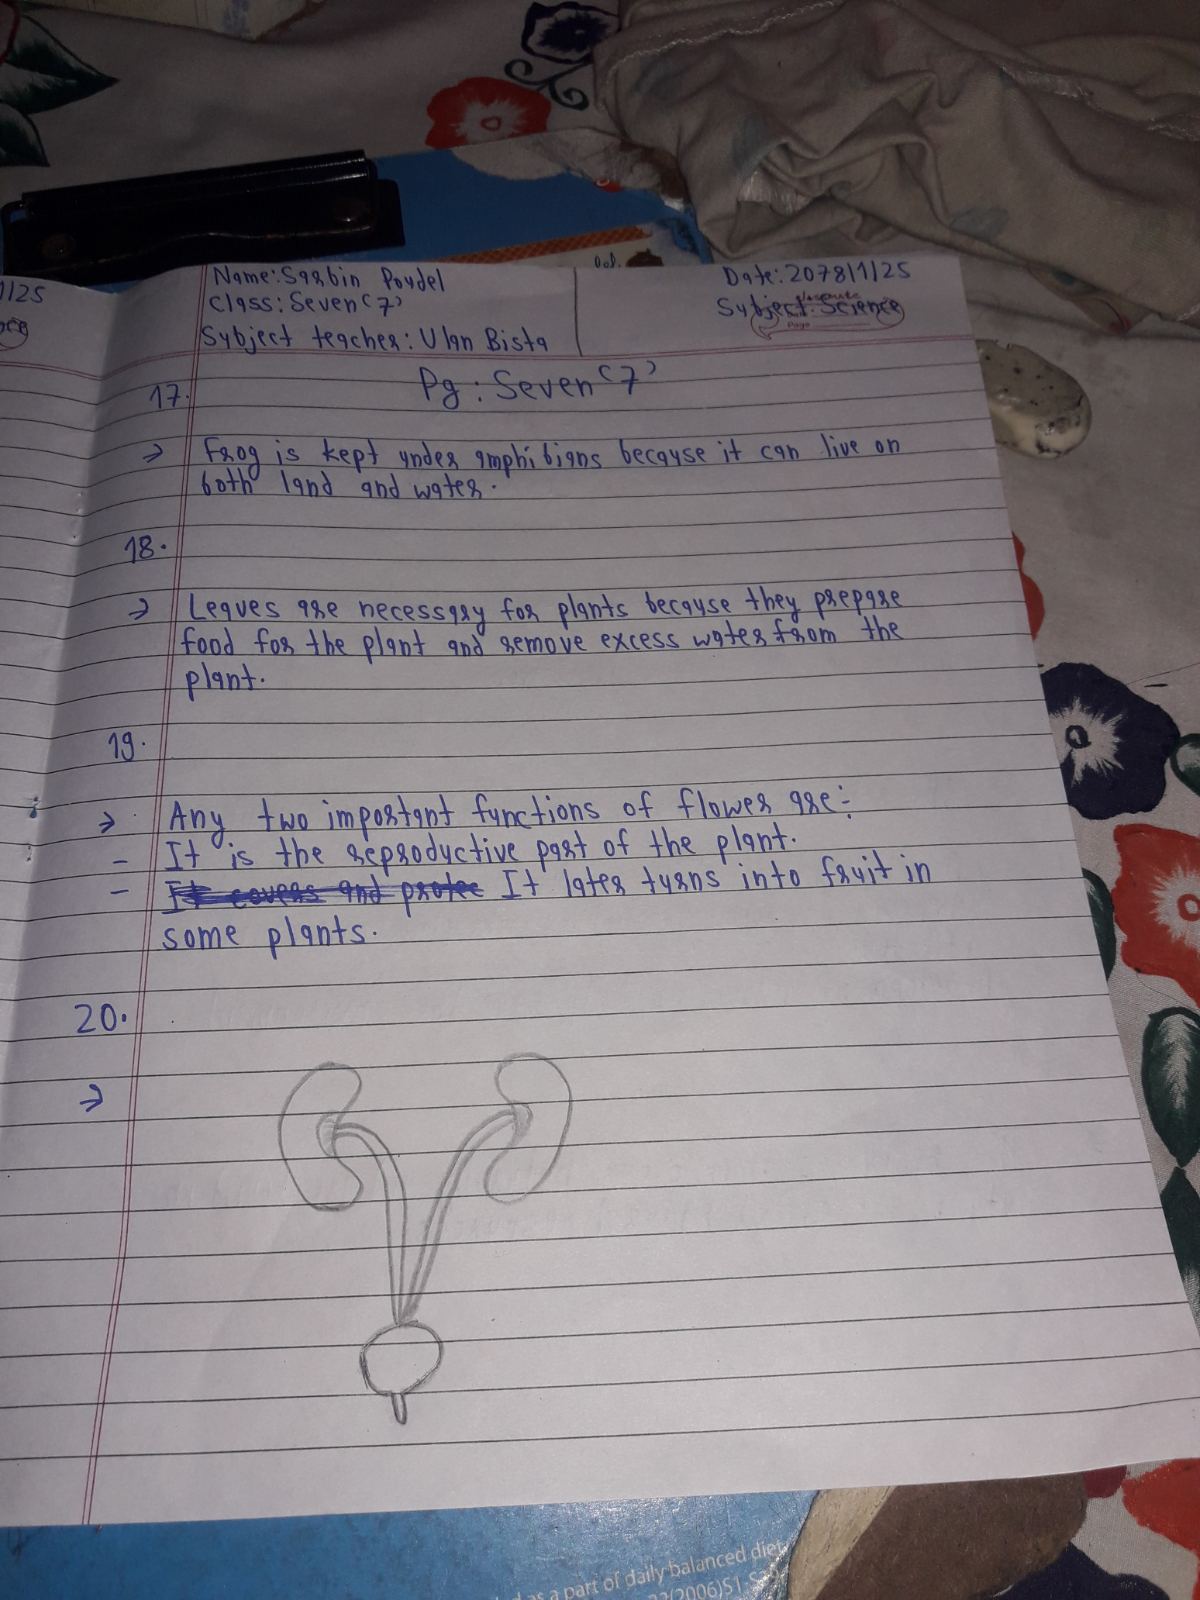 1/25
Name: Sarbin Poudel
Class: Seven (7)
Subject teacher: Ulan Bista
Date: 2078/1/25
Subject: Science
Page
Pg: Seven (7)
17.
→ Frog is kept under amphibians because it can live on
both land and water.
18.
→ Leaves are necessary for plants because they prepare
food for the plant and remove excess water from the
plant.
19.
→ Any two important functions of flower are:-
- It is the reproductive part of the plant.
- It covers and protec It later turns into fruit in
some plants.
20.
→
as a part of daily balanced diet
(2006)